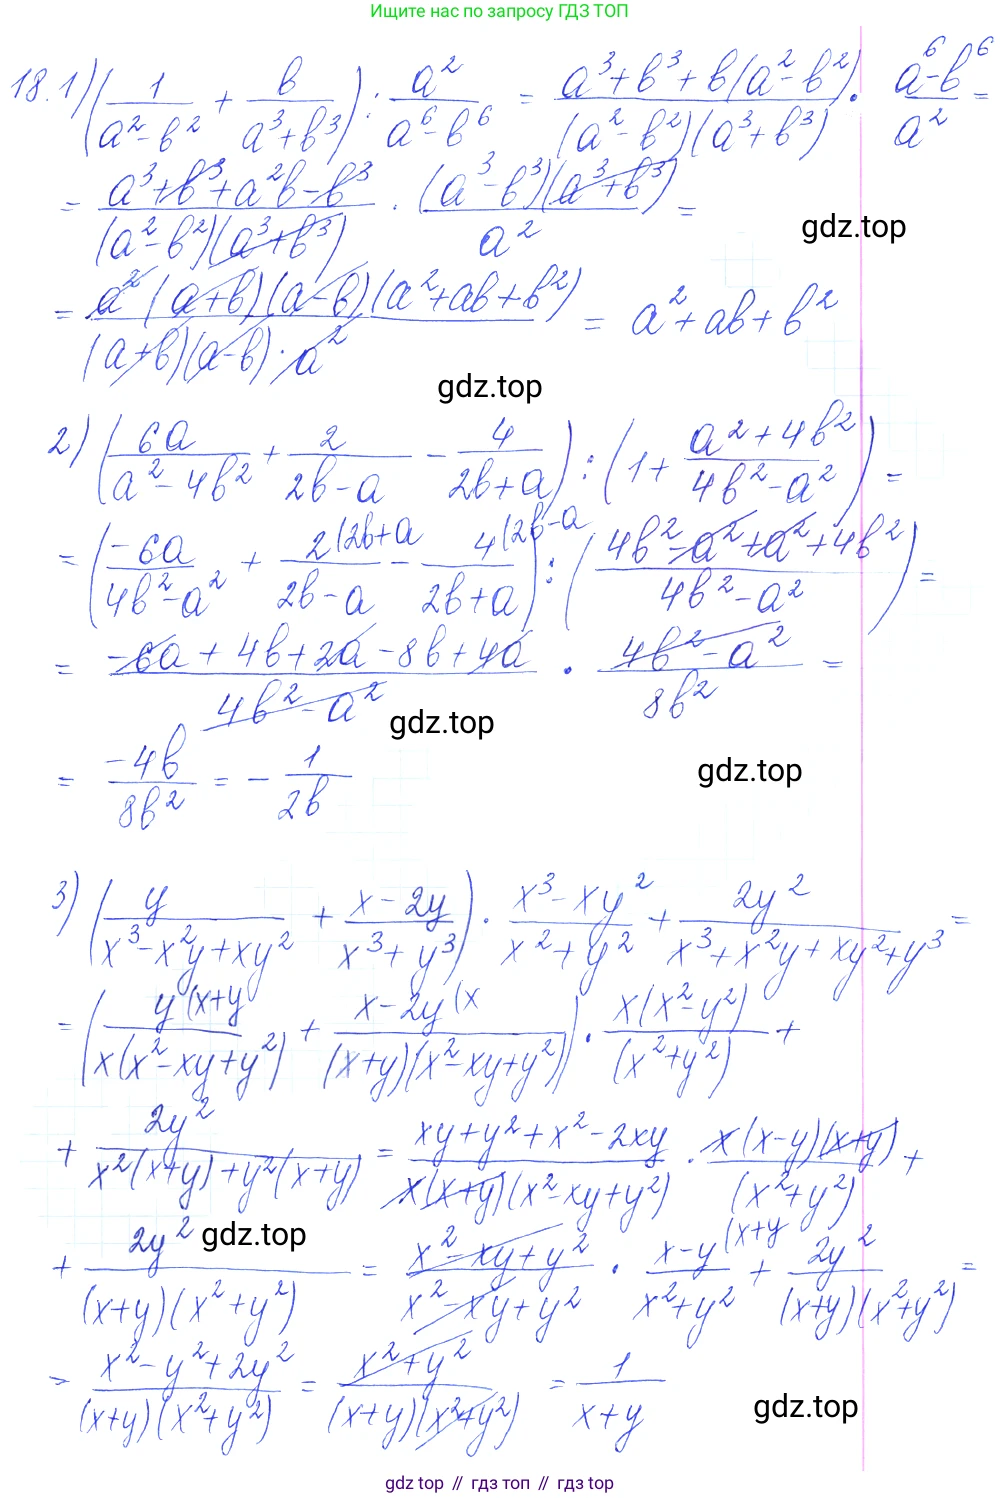 Ищите нас по запросу ГДЗ ТОП
18. 1) (1/(a²-b²) + b/(a³+b³)) : a²/(a⁶-b⁶) = (a³+b³+b(a²-b²))/((a²-b²)(a³+b³)) · (a⁶-b⁶)/a² =
= (a³+b³+a²b-b³)/((a²-b²)(a³+b³)) · ((a³-b³)(a³+b³))/a² =
gdz.top
= (a²(a+b)(a-b)(a²+ab+b²))/((a+b)(a-b)·a²) = a²+ab+b²
gdz.top
2) (6a/(a²-4b²) + 2/(2b-a) - 4/(2b+a)) : (1 + (a²+4b²)/(4b²-a²)) =
= (-6a/(4b²-a²) + 2(2b+a/(2b-a) - 4(2b-a/(2b+a)) : ((4b²-a²+a²+4b²)/(4b²-a²)) =
= (-6a+4b+2a-8b+4a)/(4b²-a²) · (4b²-a²)/8b² =
gdz.top
= -4b/8b² = - 1/2b
gdz.top
3) (y/(x³-x²y+xy²) + (x-2y)/(x³+y³)) · (x³-xy²)/(x²+y²) + 2y²/(x³+x²y+xy²+y³) =
= (y(x+y/(x(x²-xy+y²)) + x-2y(x/((x+y)(x²-xy+y²))) · x(x²-y²)/(x²+y²) +
+ 2y²/(x²(x+y)+y²(x+y)) = (xy+y²+x²-2xy)/(x(x+y)(x²-xy+y²)) · x(x-y)(x+y)/(x²+y²) +
gdz.top
+ 2y²/((x+y)(x²+y²)) = (x²-xy+y²)/(x²-xy+y²) · x-y(x+y/(x²+y²) + 2y²/((x+y)(x²+y²)) =
= (x²-y²+2y²)/((x+y)(x²+y²)) = (x²+y²)/((x+y)(x²+y²)) = 1/(x+y)
gdz.top
gdz top // гдз топ // gdz top